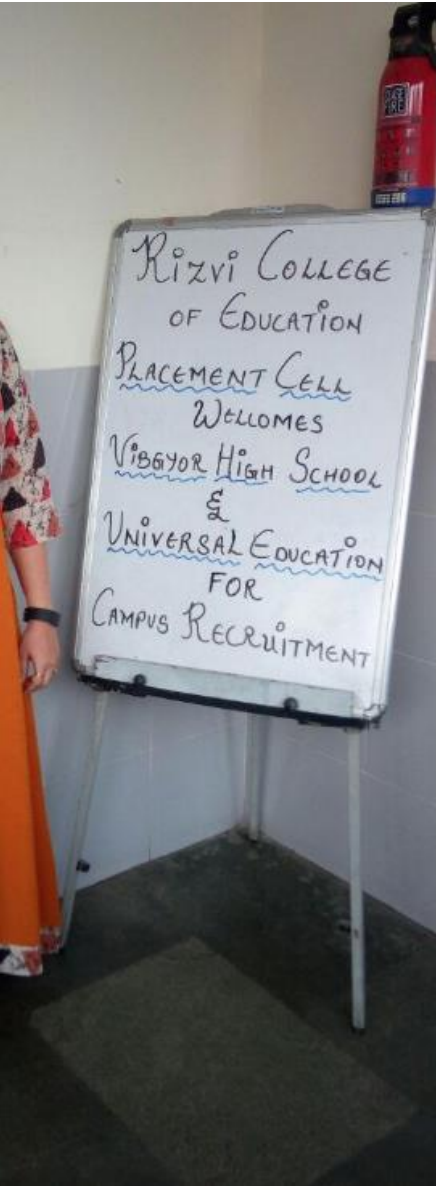 Rizvi College
of Education
Placement Cell
Wellomes
Vibgyor High School
&
Universal Education
for
Campus Recruitment